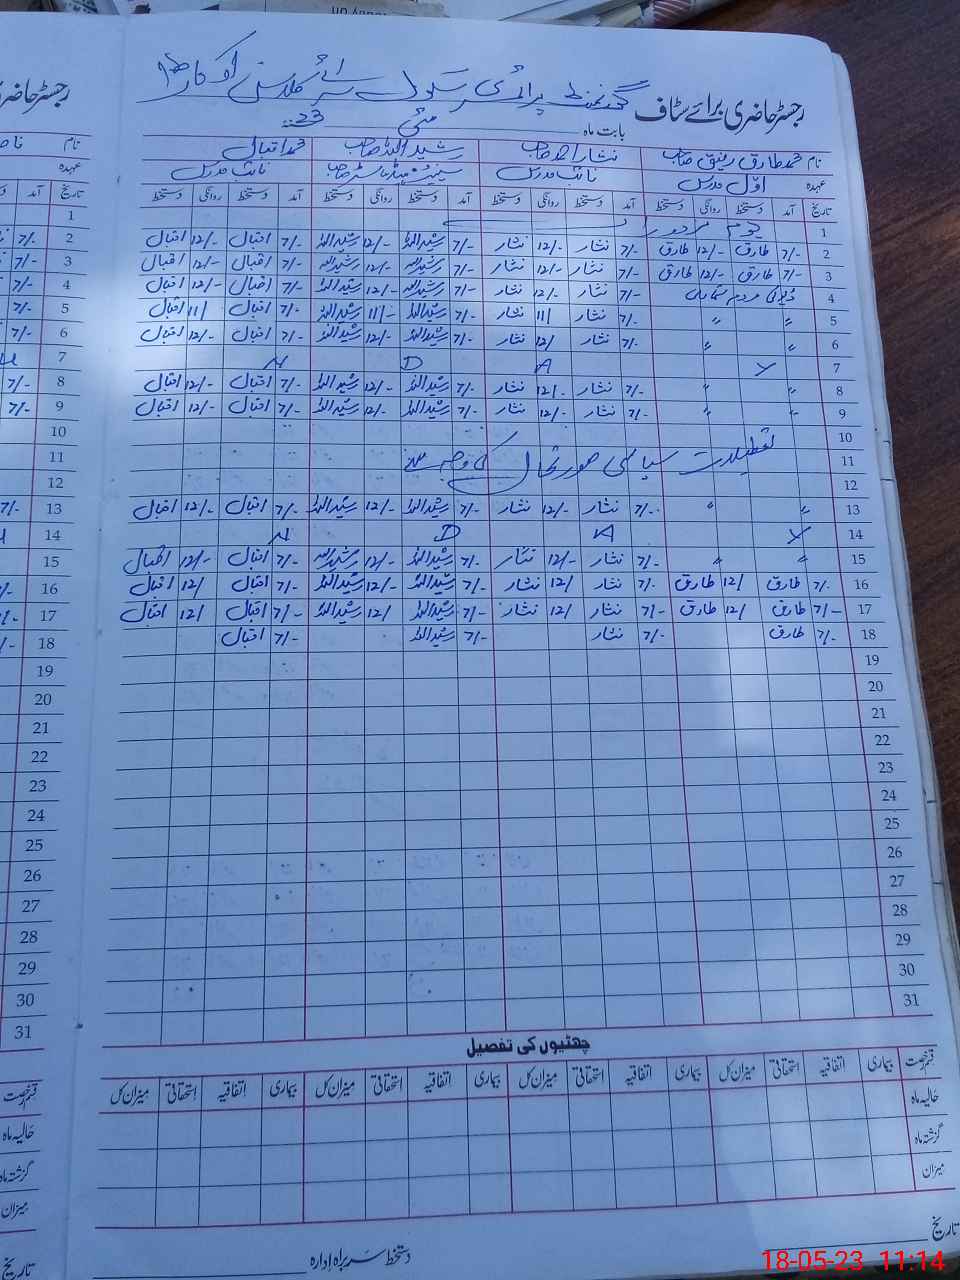 رجسٹر حاضری برائے سٹاف گورنمنٹ پرائمری سکول سرائے
بابت ماہ مئی 23
نام محمد طارق رفیق صاحب نثار احمد صاحب رشید اللہ صاحب محمد اقبال
عہدہ اول مدرس نائب مدرس سینئر ہیڈ ماسٹر صاحب نائب مدرس
تاریخ آمد دستخط روانگی دستخط آمد دستخط روانگی دستخط آمد دستخط روانگی دستخط آمد دستخط روانگی دستخط
1 یوم مزدور
2 7/- طارق 12/- طارق 7/- نثار 12/- نثار 7/- رشید اللہ 12/- رشید اللہ 7/- اقبال 12/- اقبال
3 7/- طارق 12/- طارق 7/- نثار 12/- نثار 7/- رشید اللہ 12/- رشید اللہ 7/- اقبال 12/- اقبال
4 ڈیوٹی مردم شماری 7/- نثار 12/- نثار 7/- رشید اللہ 12/- رشید اللہ 7/- اقبال 12/- اقبال
5 〃 〃 7/- نثار 11/ نثار 7/- رشید اللہ 11/- رشید اللہ 7/- اقبال 11/ اقبال
6 〃 〃 7/- نثار 12/ نثار 7/- رشید اللہ 12/- رشید اللہ 7/- اقبال 12/- اقبال
7 Y A D N
8 〃 〃 7/- نثار 12/- نثار 7/- رشید اللہ 12/- رشید اللہ 7/- اقبال 12/- اقبال
9 〃 〃 7/- نثار 12/- نثار 7/- رشید اللہ 12/- رشید اللہ 7/- اقبال 12/- اقبال
10
11 تعطیلات سیاسی صورتحال کی وجہ سے
12
13 〃 〃 7/- نثار 12/- نثار 7/- رشید اللہ 12/- رشید اللہ 7/- اقبال 12/- اقبال
14 Y A D N
15 〃 〃 7/- نثار 12/- نثار 7/- رشید اللہ 12/- رشید اللہ 7/- اقبال 12/- اقبال
16 7/- طارق 12/ طارق 7/- نثار 12/ نثار 7/- رشید اللہ 12/- رشید اللہ 7/- اقبال 12/ اقبال
17 7/- طارق 12/ طارق 7/- نثار 12/ نثار 7/- رشید اللہ 12/ رشید اللہ 7/- اقبال 12/ اقبال
18 7/- طارق 7/- نثار 7/- رشید اللہ 7/- اقبال
19
20
21
22
23
24
25
26
27
28
29
30
31
چھٹیوں کی تفصیل
قسم رخصت بیماری اتفاقیہ استحقاقی میزان کل بیماری اتفاقیہ استحقاقی میزان کل بیماری اتفاقیہ استحقاقی میزان کل بیماری اتفاقیہ استحقاقی میزان کل
حالیہ ماہ
گزشتہ ماہ
میزان
تاریخ دستخط سربراہ ادارہ
18-05-23 11:14